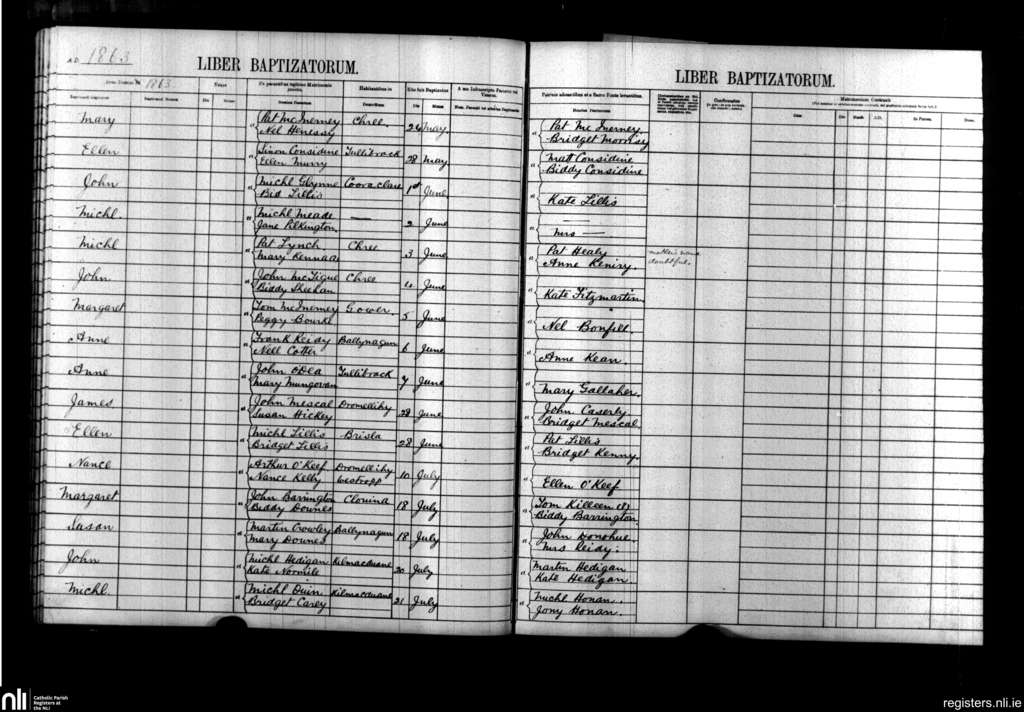 A.D. 1863
LIBER BAPTIZATORUM.
1863
Mary Pat McInerney Chree. 26 May
Nel Henessy
Ellen Simon Considine Tullibrack 28 May
Ellen Murry
John Michl Glynne Cooraclare 1st June
Bid Lillis
Michl. Michl Meade — 2 June
Jane Pilkington
Michl Pat Lynch. Chree 3 June
Mary Kennaa
John John McTigue Chree June
Biddy Sheehan
Margaret Tom McInerney Gower. 5 June
Peggy Bourke
Anne Frank Reidy Ballynagun 6 June
Nell Cotter
Anne John O'Dea Tullibrack 7 June
Mary Mungovan
James John Mescal Dromelliky 28 June
Susan Hickey
Ellen Michl Lillis Brisla 28 June
Bridget Lillis
Nance Arthur O'Keef Dromelliky 10 July
Nance Kelly Westropp
Margaret John Barrington Clonina 18 July
Biddy Downes
Susan Martin Crowley Ballynagun 18 July
Mary Downes
John Michl Hedigan Kilmacduane 20 July
Kate Normile
Michl. Michl Quin Kilmacduane 21 July
Bridget Carey
LIBER BAPTIZATORUM.
Pat McInerney.
Bridget Morrisey
Matt Considine
Biddy Considine
Kate Lillis
Mrs —
Pat Healy mother's name
Anne Keniry. doubtful.
Kate Fitzmartin
Nel Bonfill.
Anne Kean.
Mary Gallaher.
John Caserly
Bridget Mescal
Pat Lillis
Bridget Kenny.
Ellen O'Keef
Tom Killeen
Biddy Barrington
John Donohue.
Mrs Reidy.
Martin Hedigan
Kate Hedigan.
Michl Honan.
Jony Honan.
nli
Catholic Parish
Registers at
the NLI
registers.nli.ie